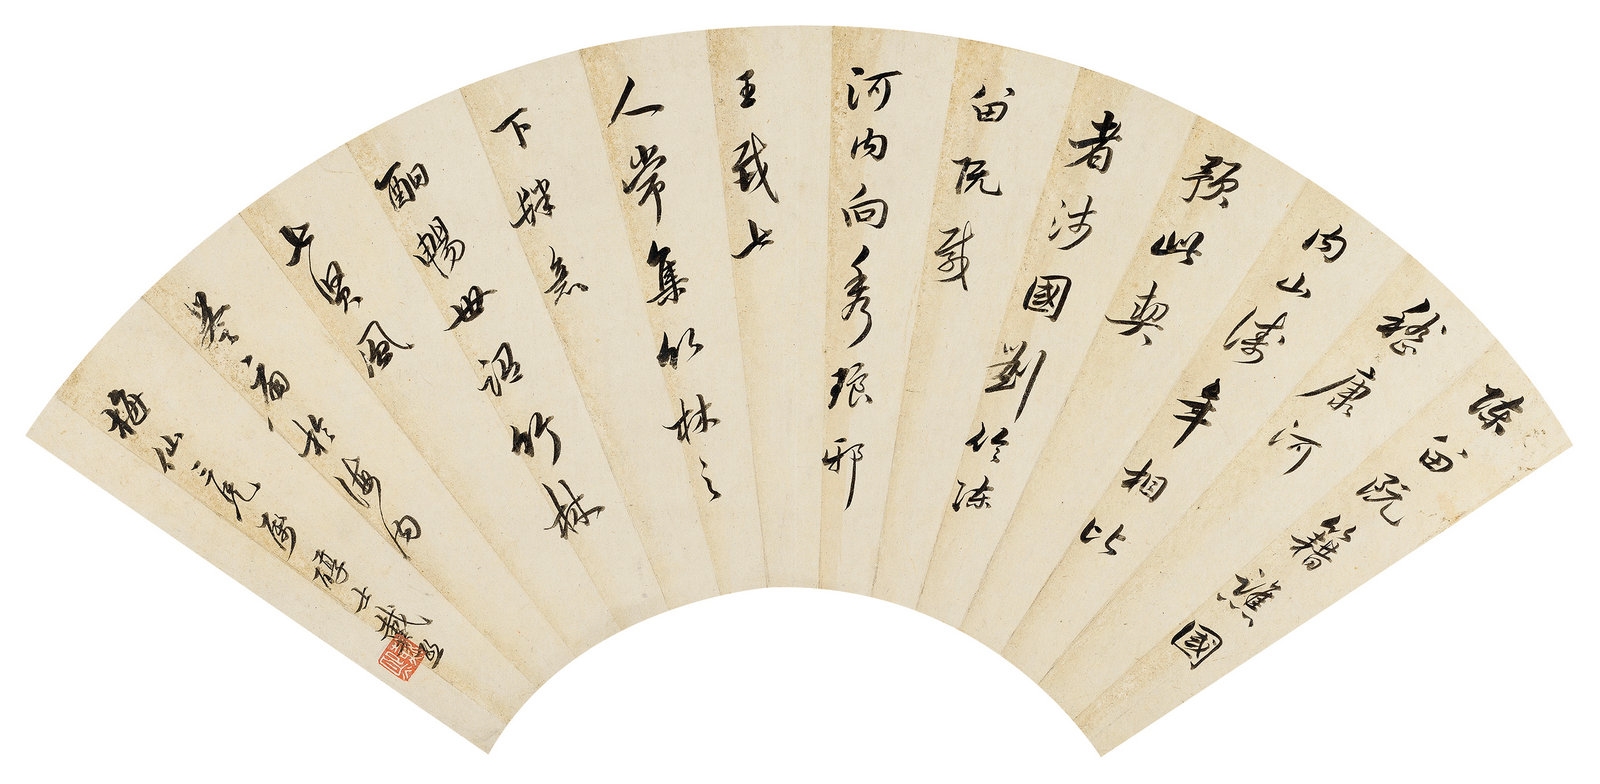 陳留阮籍譙國
嵇康河
內山濤年相比
預此契
者沛國劉伶陳
留阮咸
河內向秀琅邪
王戎七
人常集竹林之
下肆意
酣暢世謂竹林
七賢風
譽扇於海內
梅仙三兄屬 醇士戴熙